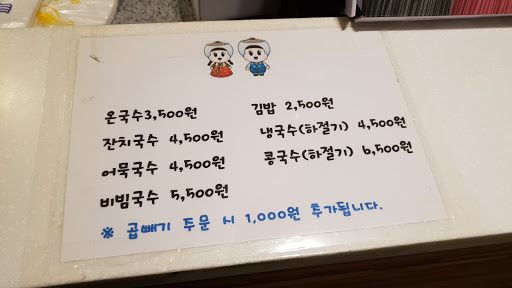 온국수3,500원
잔치국수 4,500원
어묵국수 4,500원
비빔국수 5,500원
김밥 2,500원
냉국수(하절기) 4,500원
콩국수(하절기) 6,500원
※ 곱빼기 주문 시 1,000원 추가됩니다.